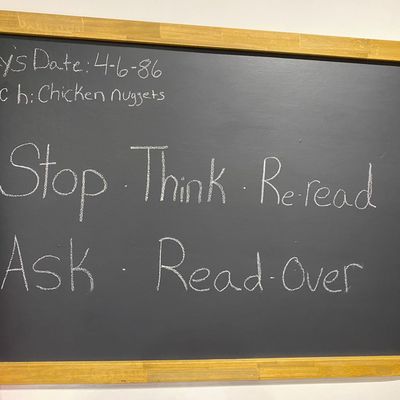 y's Date: 4-6-86
c h: Chicken nuggets
Stop · Think · Re-read
Ask · Read-Over